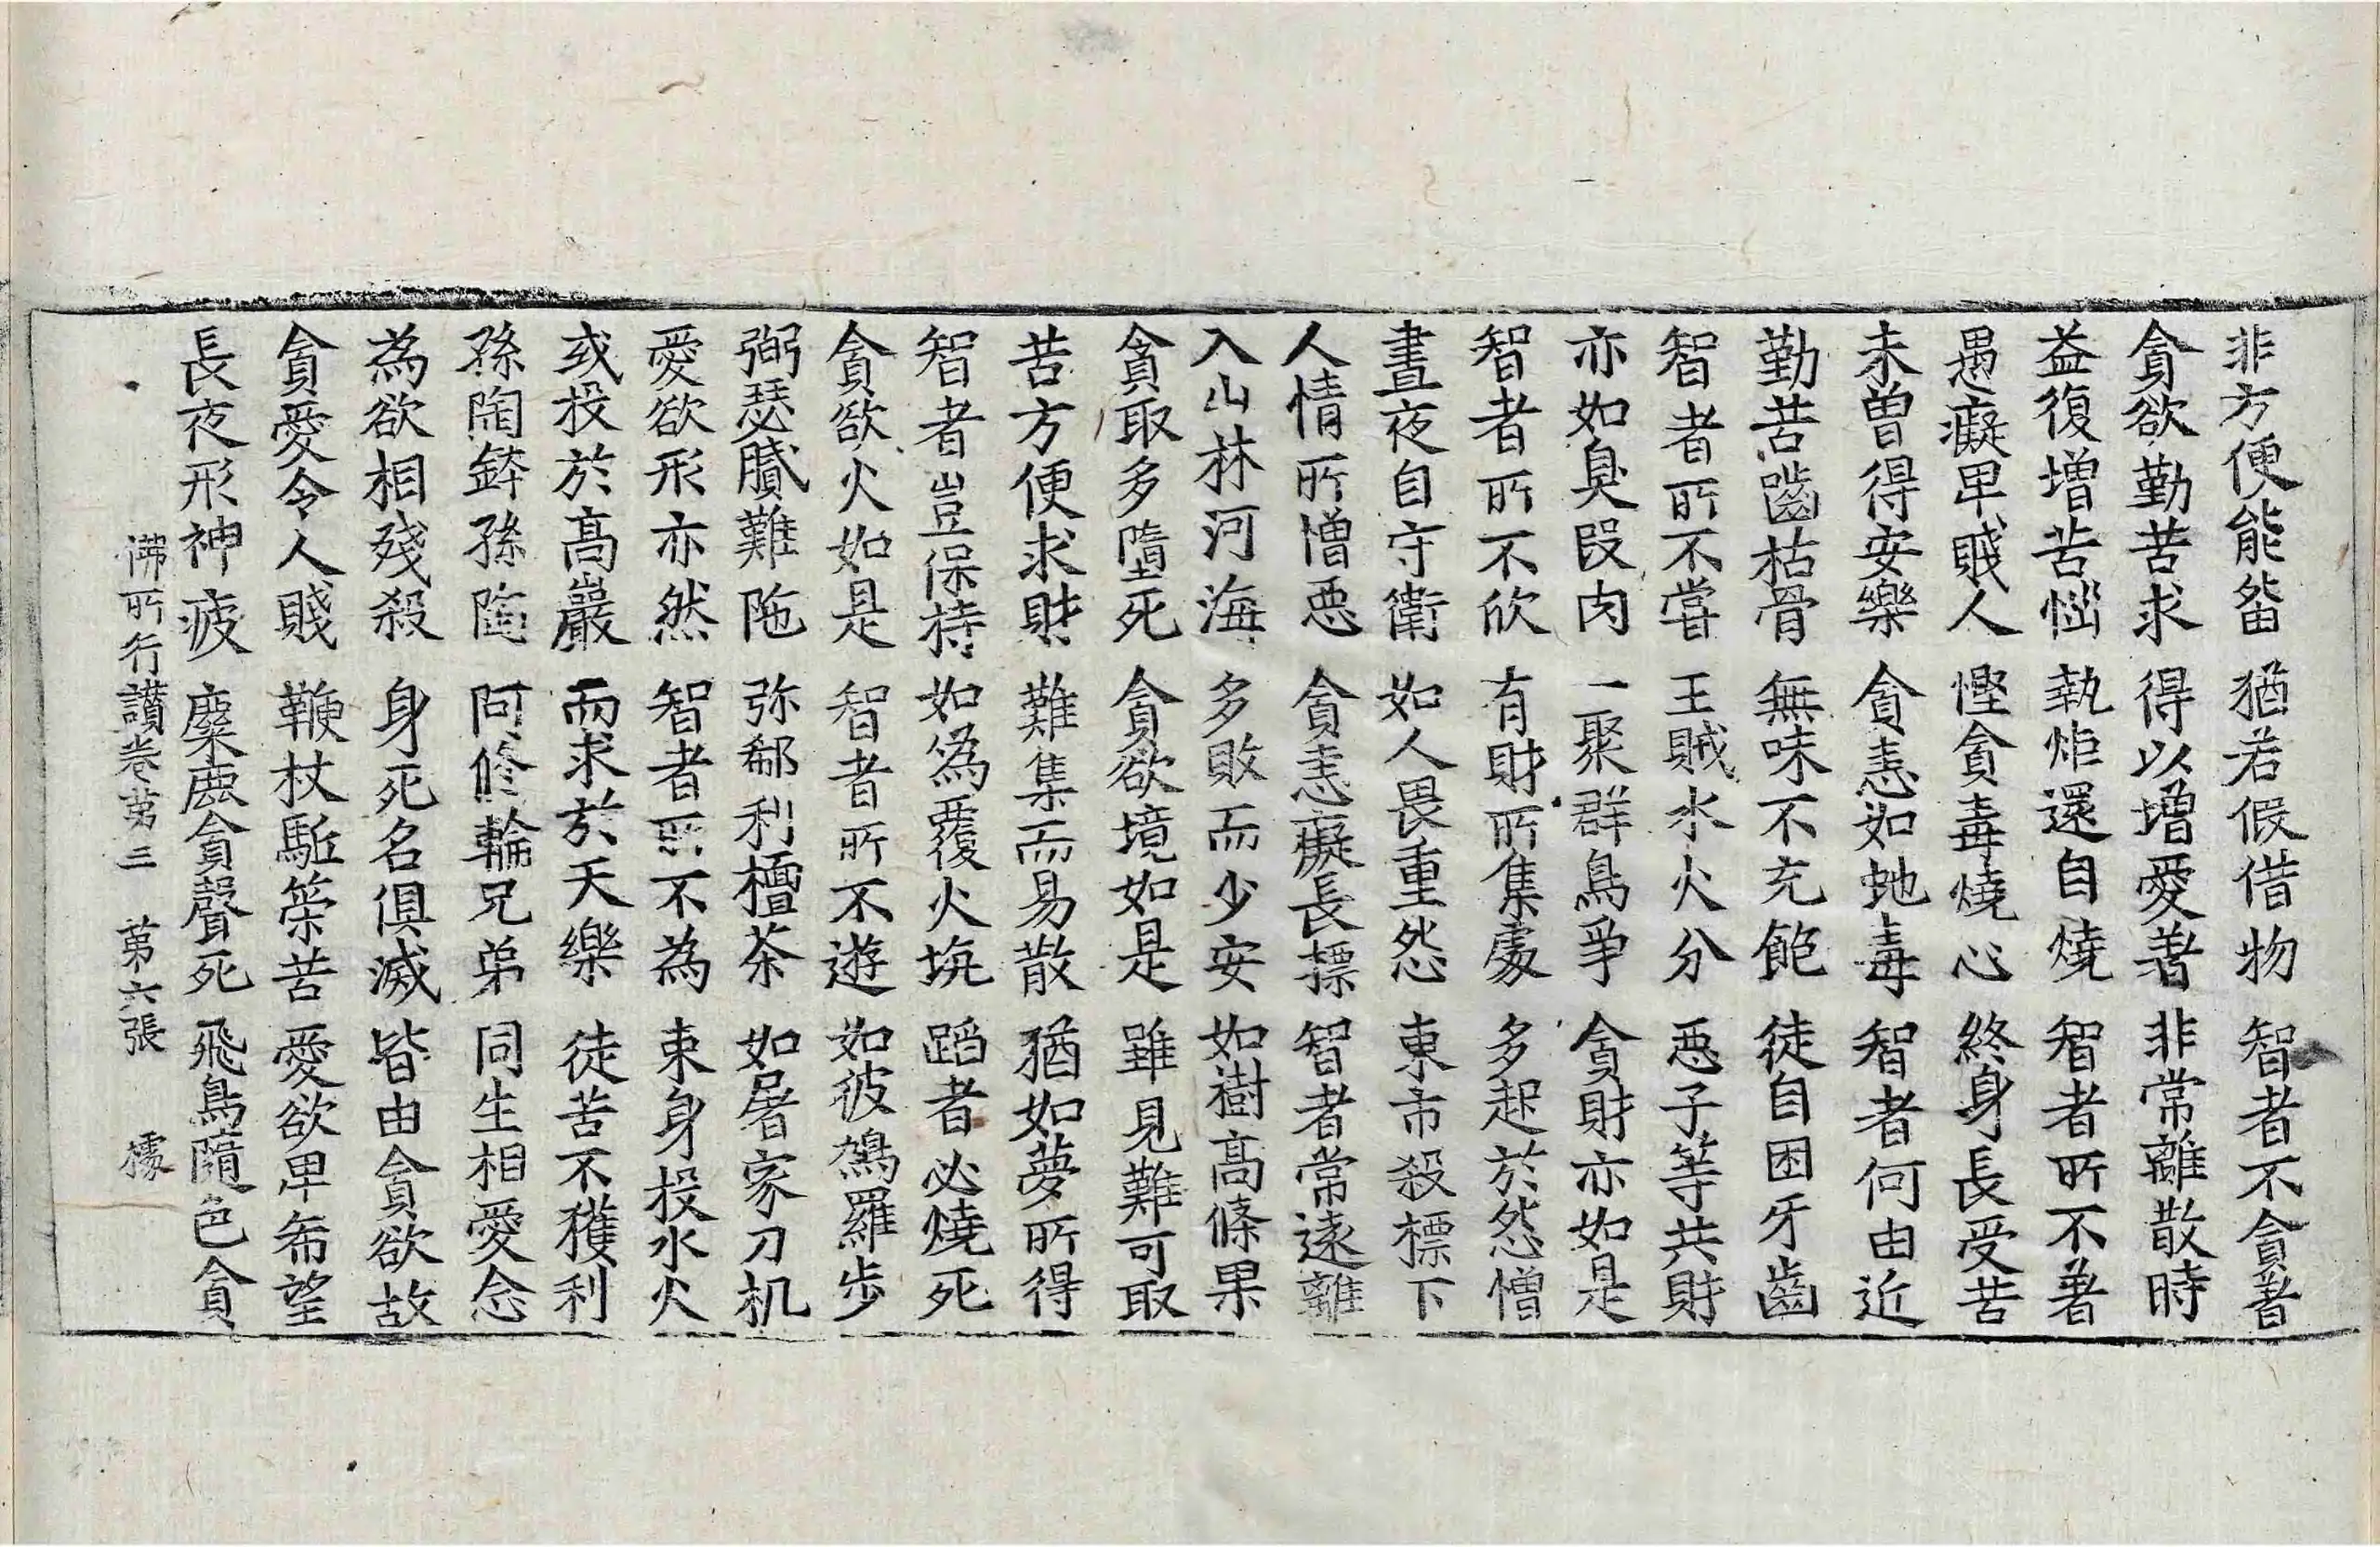 非方便能畱 猶若假借物 智者不貪著
貪欲勤苦求 得以增愛著 非常離散時
益復增苦惱 執炬還自燒 智者所不著
愚癡卑賤人 慳貪毒燒心 終身長受苦
未曾得安樂 貪恚如虵毒 智者何由近
勤苦嚙枯骨 無味不充飽 徒自困牙齒
智者所不嘗 王賊水火分 惡子等共財
亦如臭段肉 一聚群鳥爭 貪財亦如是
智者所不欣 有財所集處 多起於怨憎
晝夜自守衛 如人畏重怨 東市殺標下
人情所憎惡 貪恚癡長摽 智者常遠離
入山林河海 多敗而少安 如樹高條果
貪取多墮死 貪欲境如是 雖見難可取
苦方便求財 難集而易散 猶如夢所得
智者豈保持 如為覆火坑 蹈者必燒死
貪欲火如是 智者所不遊 如彼鵁羅步
弼瑟膩難陁 弥郗利檀茶 如屠家刀机
愛欲形亦然 智者所不為 束身投水火
或投於高巖 而求於天樂 徒苦不獲利
孫陶鉢孫陶 阿修輪兄弟 同生相愛念
為欲相殘殺 身死名俱滅 皆由貪欲故
貪愛令人賤 鞭杖駈策苦 愛欲卑希望
長夜形神疲 麋鹿貪聲死 飛鳥隨色貪
佛所行讃卷苐三 苐六張 㯫